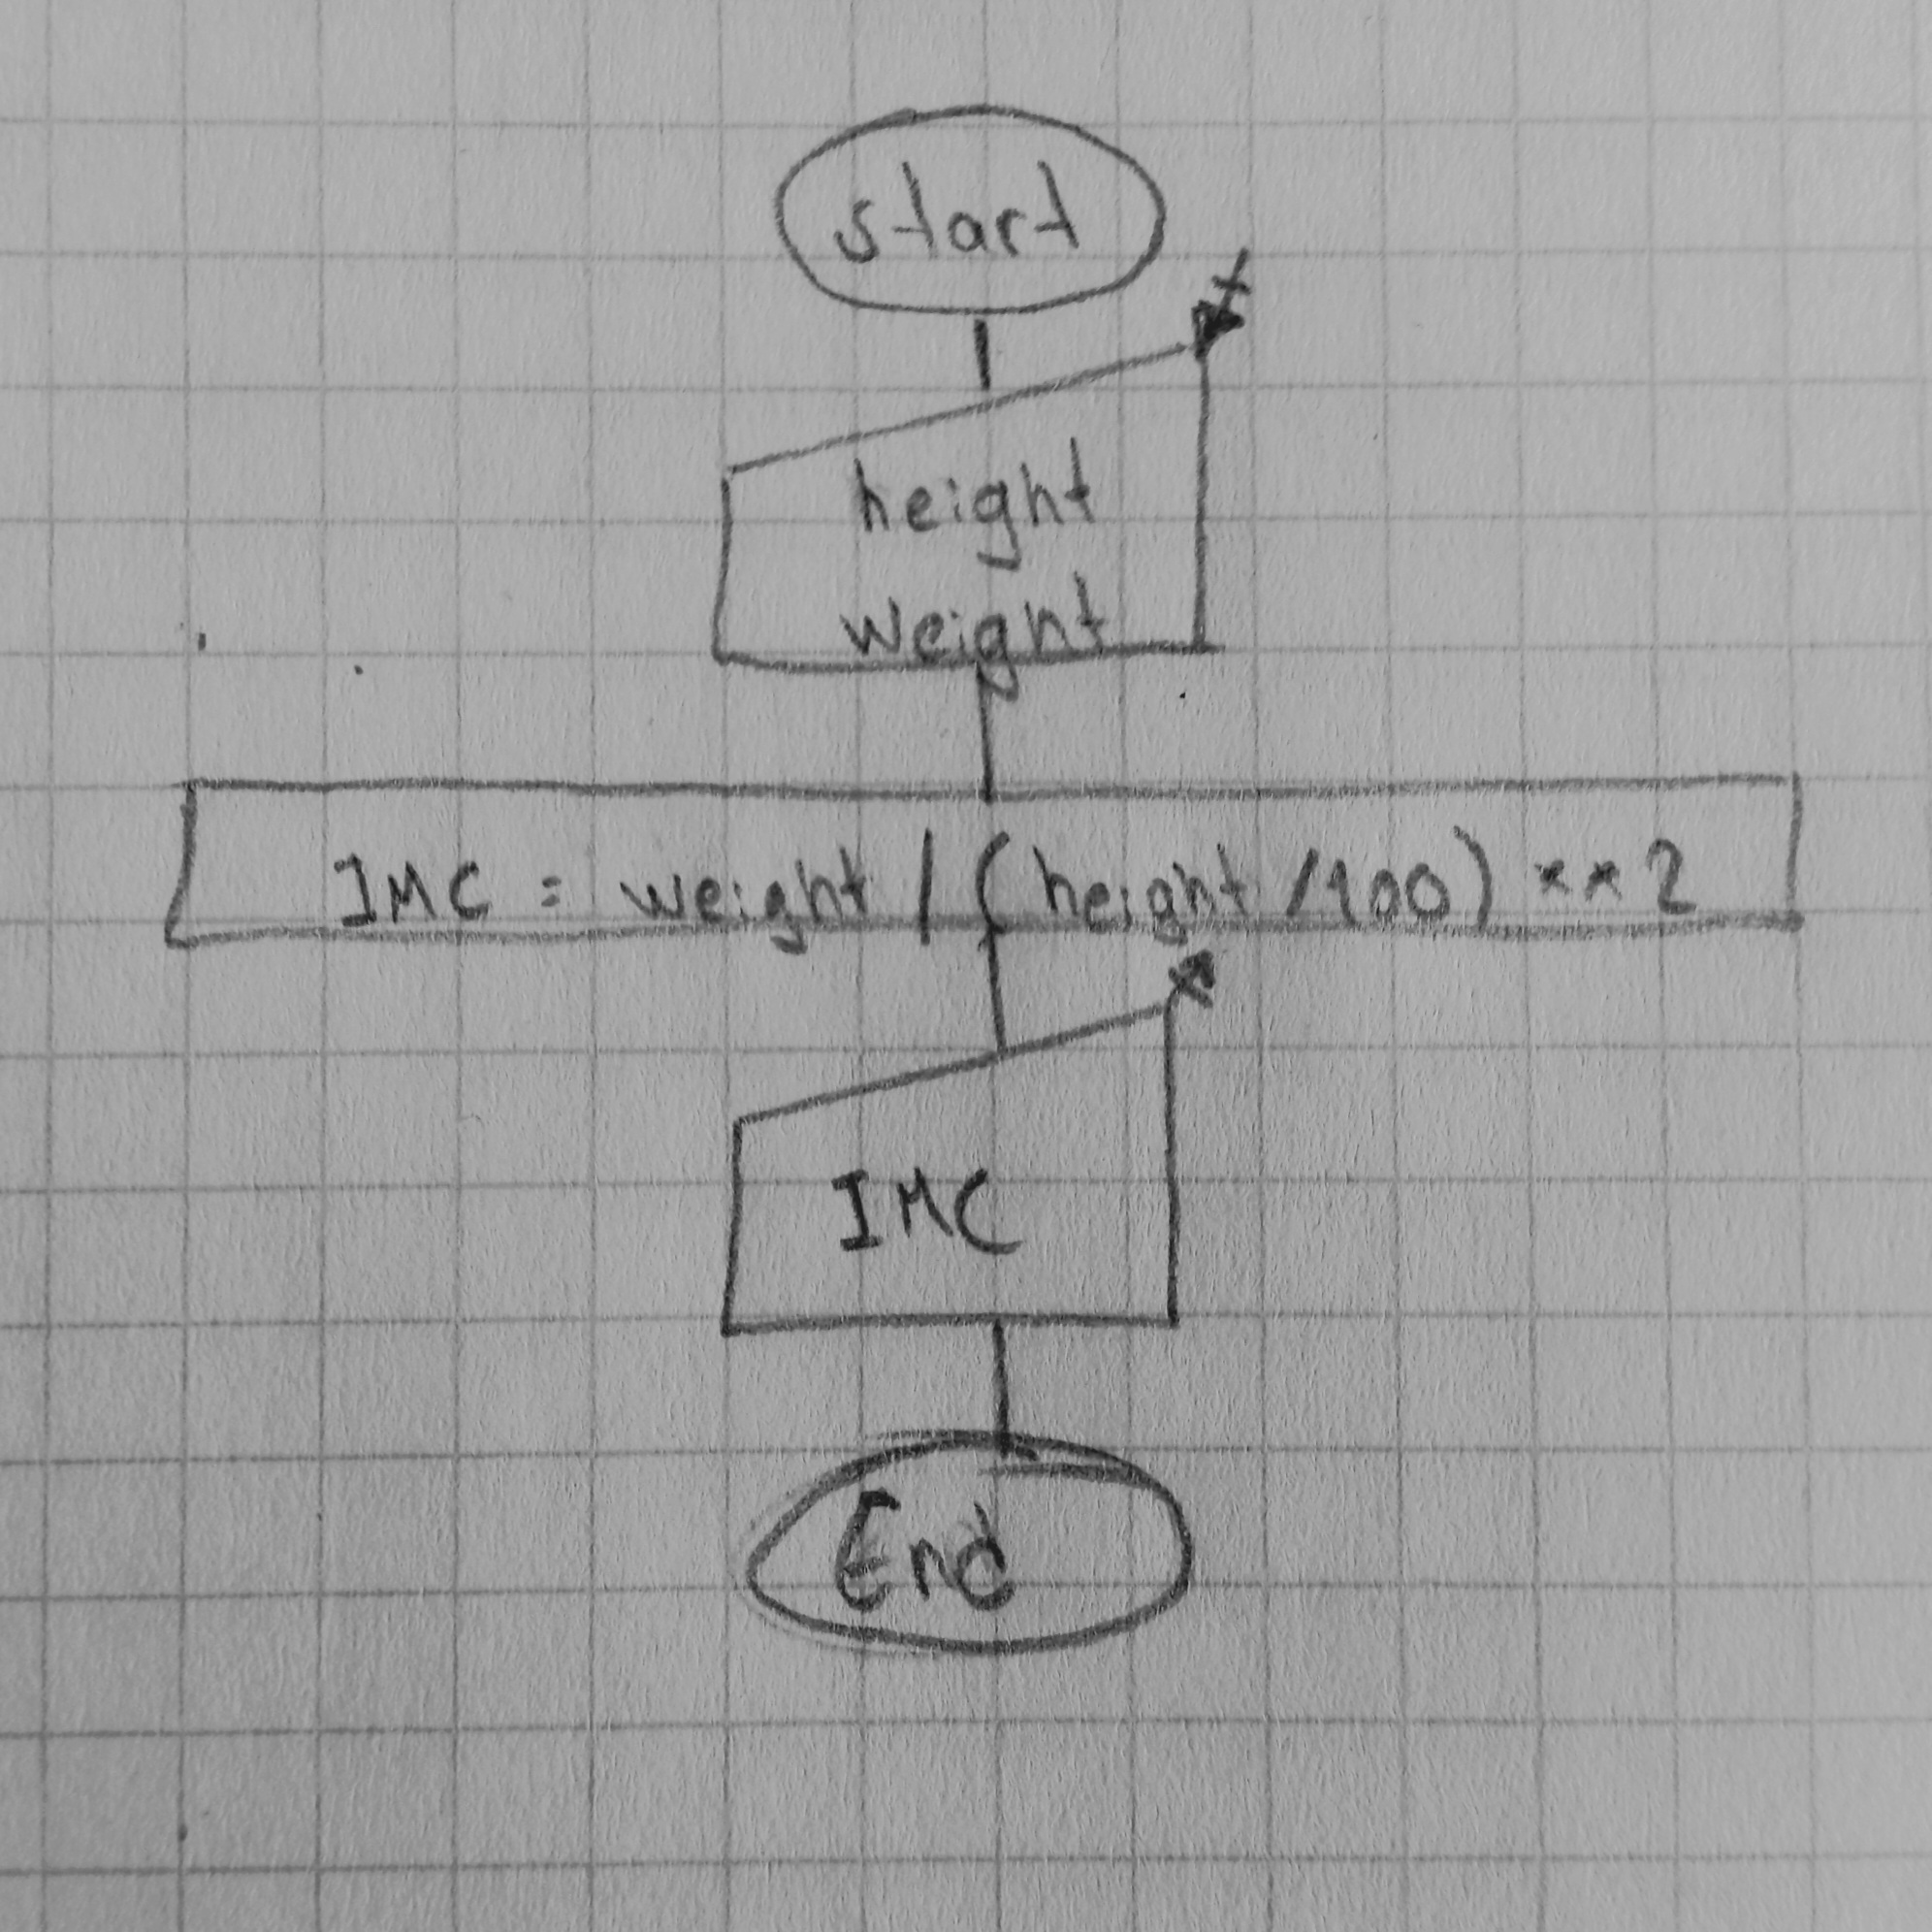 start
height
weight
IMC = weight / (height /100) ** 2
IMC
End